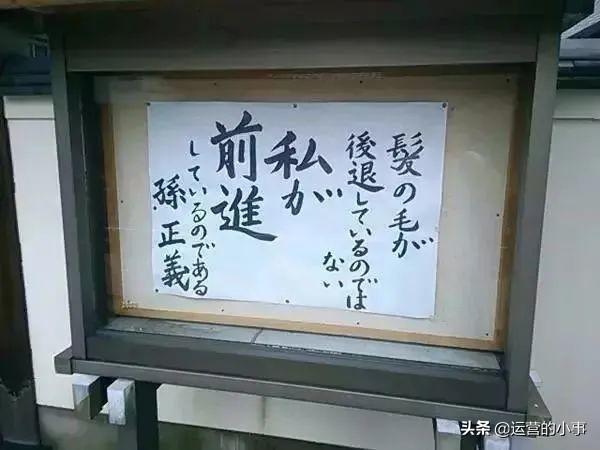 髪の毛が
後退しているのでは
ない
私が
前進
しているのである
孫正義
头条 @运营的小事